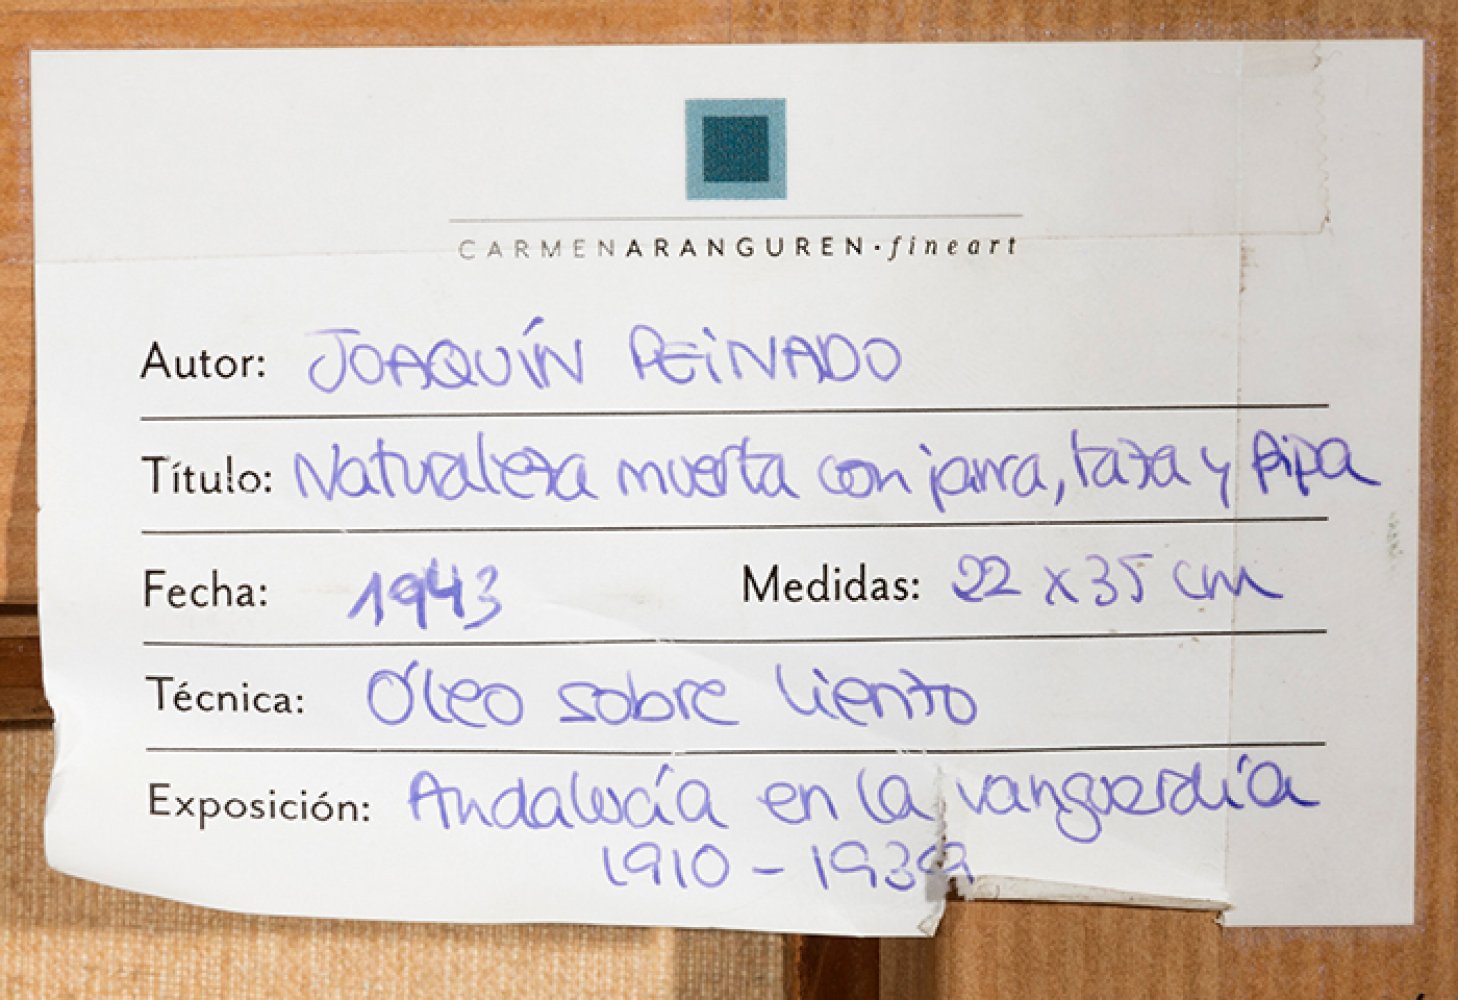 CARMENARANGUREN·fineart
Autor: JOAQUÍN PEiNADO
Título: Naturaleza muerta con jarra, taza y pipa
Fecha: 1943 Medidas: 22 x 35 cm
Técnica: Óleo sobre lienzo
Exposición: Andalucía en la vanguardia
1910 - 1939